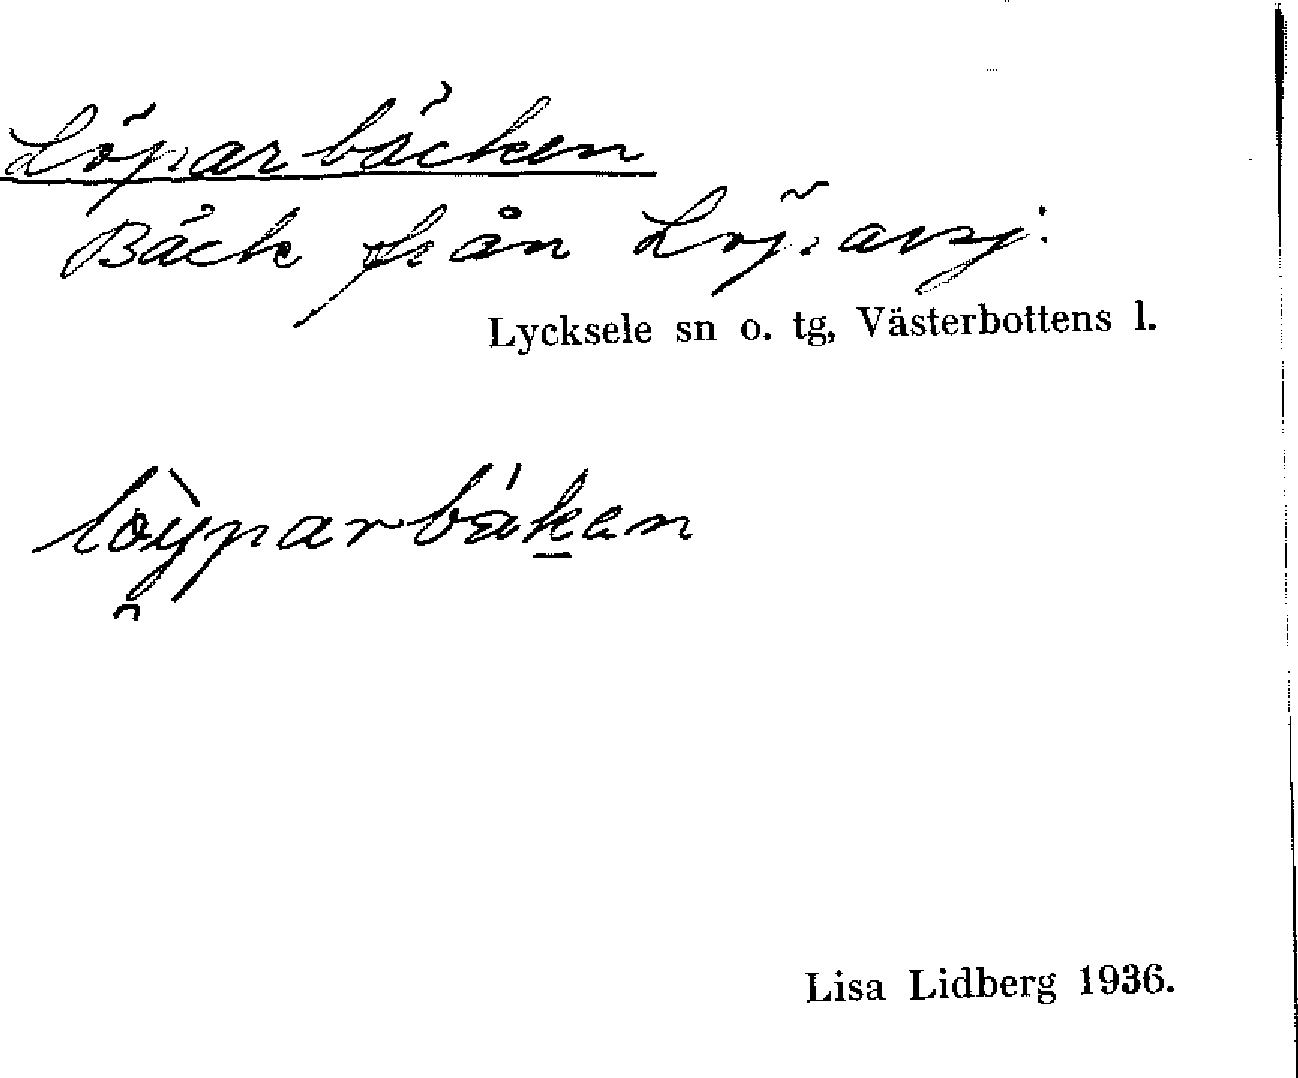 Löparbäcken
Bäck från Löparsj.
Lycksele sn o. tg, Västerbottens l.
löyparbäkan
Lisa Lidberg 1936.